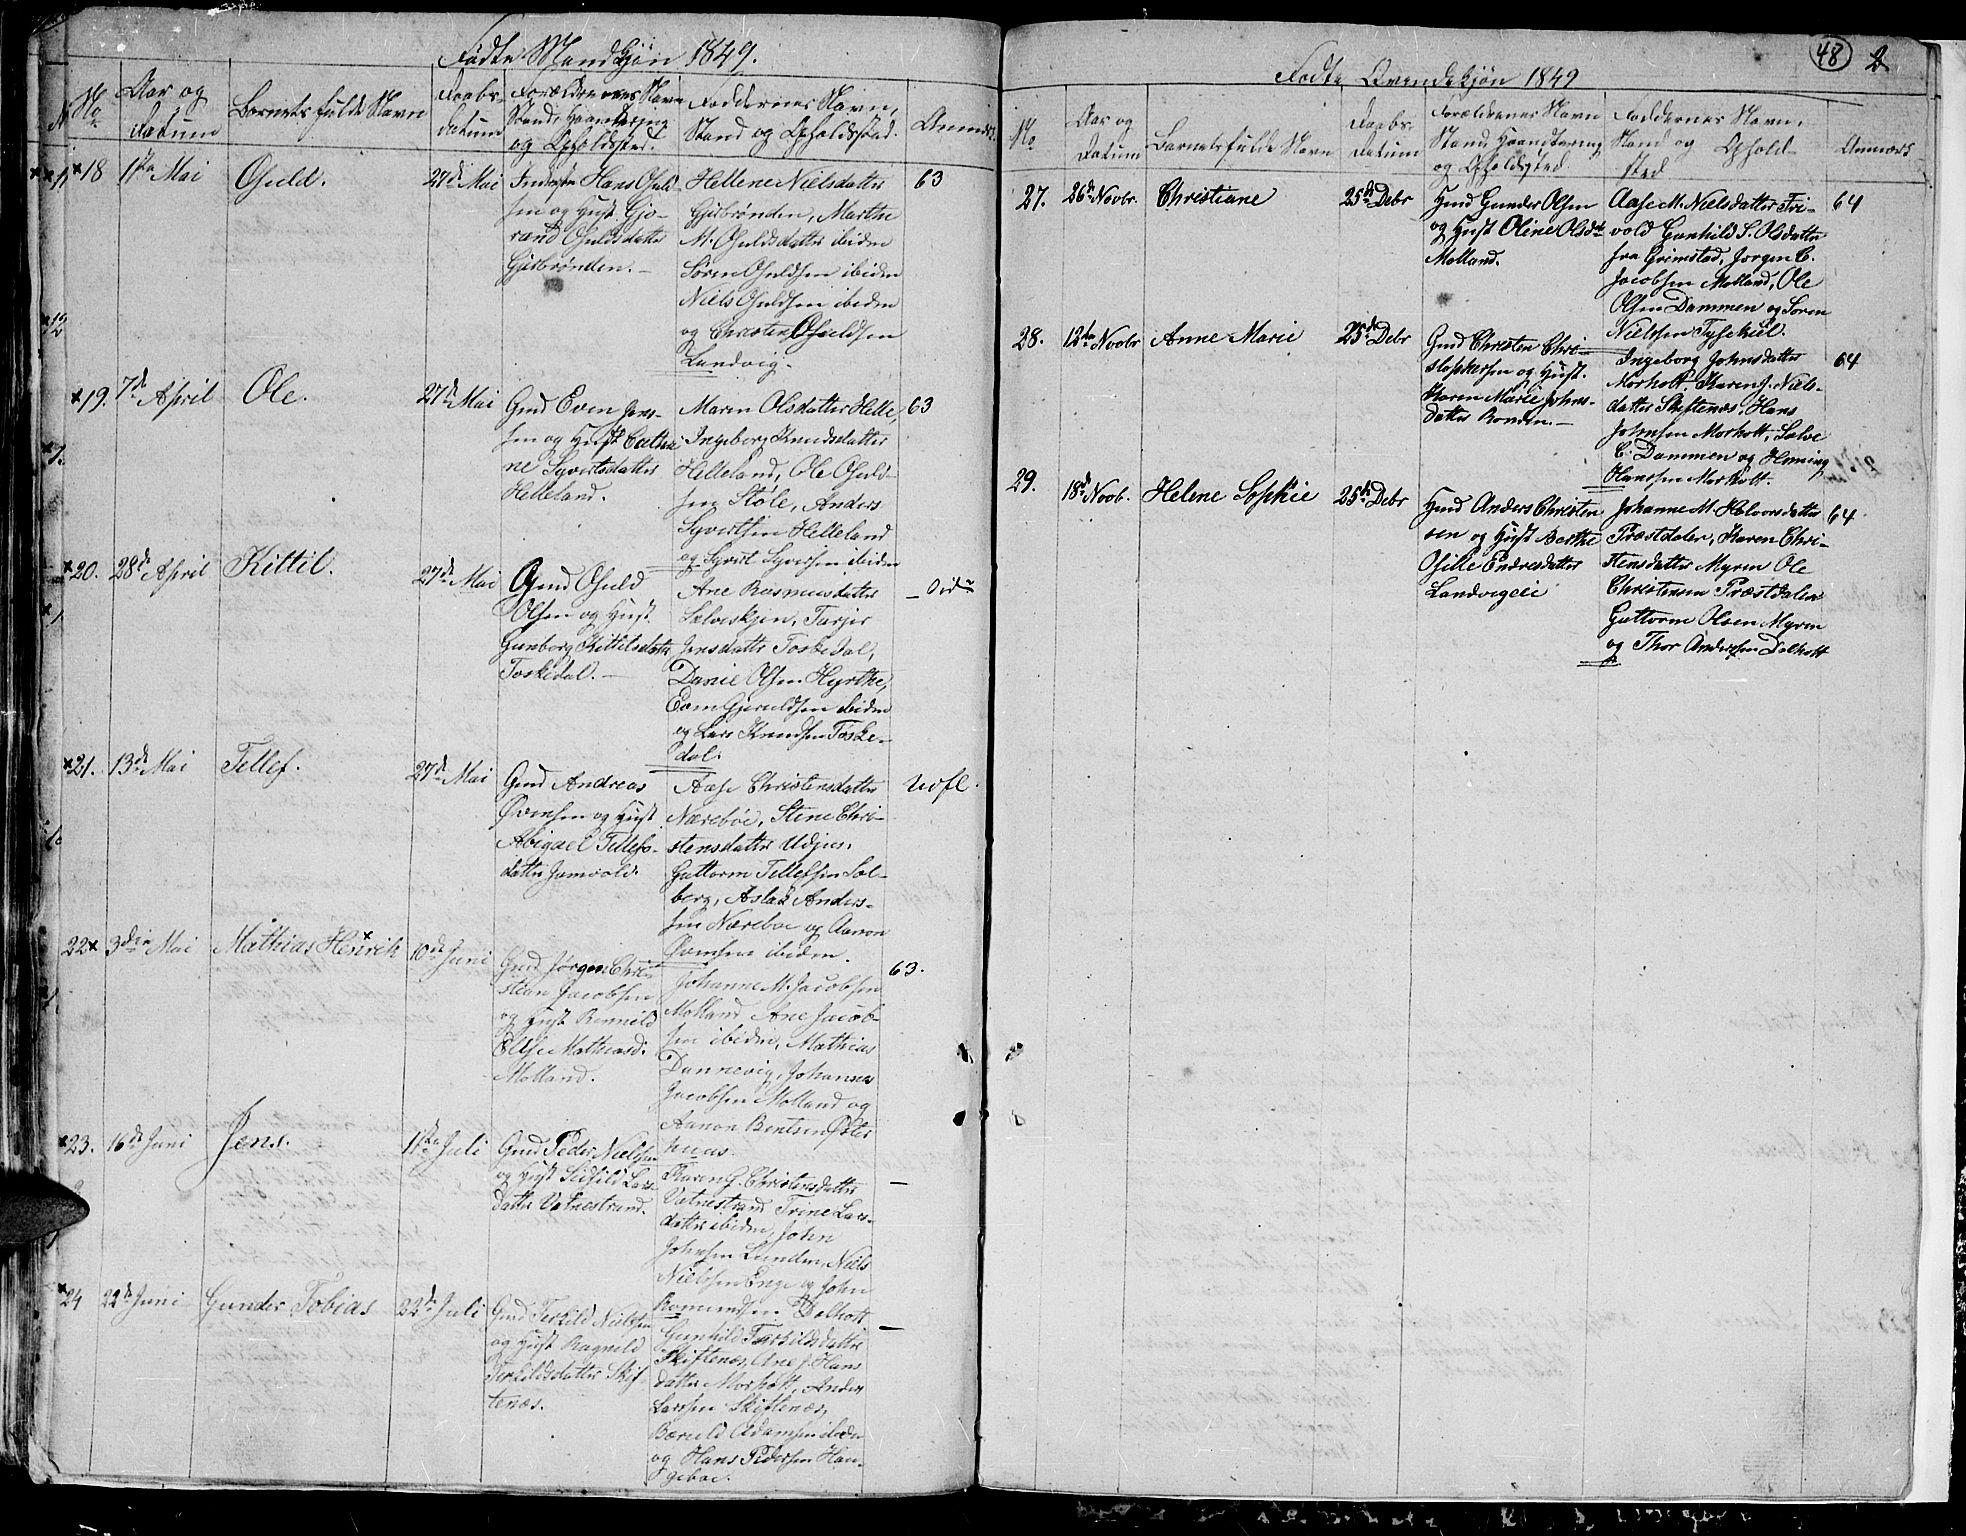 Fødte Mandkjøn 1849.
No
Aar og Datum
Barnets fulde Navn
Daabs-datum
Forældrenes Navn Stand, Haandtering og Opholdsted.
Faddernes Navn, Stand og Opholdsted.
Anmær.
18
1ste Mai
Osuld.
27de Mai
Hans Osuld-
sen og Hust. Gjo-
rand Osuldsdatter
Gjisbrønden.
Hellene Nielsdatter
Gjisbrønden, Marthe
M. Osuldsdatter ibiden
Søren Osuldsen ibiden
Niels Osuldsen ibiden
og Christen Osuldsen
Landvig.
63
19.
7de April
Ole.
27de Mai
Gmd Even Jens-
sen og Hust Cathri-
ne Syvertsdatter
Helleland.
Maren Olsdatter Helle,
Ingeborg Knudsdatter
Helleland, Ole Osuld-
sen Støle, Anders
Syvertsen Helleland
og Syvert Syversen ibiden
63
20.
28de April
Kittil.
27de Mai
Gmd Osuld
Olsen og Hust.
Gunborg Kittilsdatter
Toskedal.
Ane Rasmusdatter
Salveskjen, Tarjer
Jensdatter Toskedal,
Daniel Olsen Hyrthe,
Even Gjeruldsen ibiden
og Lars Knudsen Toske-
dal.
21.
13de Mai
Tellef.
27de Mai
Gmd Andreas
Øvensen og Hust
Abigael Tellefs-
datter Jamvold.
Aase Christensdatter
Nærebøe, Stine Chri-
stensdatter Udjus,
Guttorm Tellefsen Sol-
berg, Aslak Anders-
sen Nærebøe og Aanon
Øvensen ibiden.
22
3die Mai
Mathias Henrik
10de Juni
Gmd Jørgen Chri-
stian Jacobsen
og Hust Ronnild
Else Mathiasd.
Molland.
Johanne M. Jacobsen
Molland Ane Jacob-
sen ibiden, Mathias
Dannevig, Johannes
Jacobsen Molland og
Aanon Bentsen Øster
huus.
63.
23.
16de Juni
Jens.
11te Juli
Gmd Peder Nielsen
og Hust Sidsild Lars
datter Vatnestrand.
Karen G. Christensdatter
Vatnestrand Trine Lars-
datter ibiden, John
Johnsen Lunden, Niels
Nielsen Enge og John
Romundsen Dalhott
24
22de Juni
Gunder Tobias
22de Juli
Gmd Terkild Nielsen
og Hust Ragnild
Terkildsdatter Skif-
tenæs.
Gunhild Terkildsdatter
Skiftenæs, Ane J. Hans
datter Morholt, Anders
Larssen Skiftenæs,
Bæruld Adamsen ibiden
og Hans Pedersen Hau-
geboe.
48
2
Fødte Qvindekjøn 1849
No
Aar og Datum
Barnets fulde Navn
Daabs-Datum
Forældrenes Navn Stand, Haandtering og Opholdsted
Faddernes Navn, Stand og Ophold-sted
Anmærk
27.
26de Novbr.
Christiane
25de Debr
Hmd Gunder Olsen
og Hust Oline Olsdtr
Molland.
Aase M. Nielsdatter Fri-
vold Gunhild S. Olsdatter
fra Grimstad, Jørgen C.
Jacobsen Molland, Ole
Olsen Dammen og Søren
Nielssen
64
28.
12te Novbr
Anne Marie
25de Debr
Gmd Christen Chri-
stophersen og Hust.
Karen Marie Johns-
datter Ronden.
Ingeborg Johnsdatter
Morholt Karen J. Niels-
datter Skiftenæs, Hans
Johnsen Morholt, Salve
C. Dammen og Heming
Hanssen Morholt.
64
29.
18de Novb.
Helene Sophie
25de Debr
Hmd Anders Christen
sen og Hust Berthe
Osille Endresdatter
Landvigeie
Johanne M. Halvorsdatter
Træstdalen, Karen Chri-
stensdatter Myren Ole
Christensen Præstdalen
Guttorm Olsen Myren
og Thor Anderssen Dalholt
64